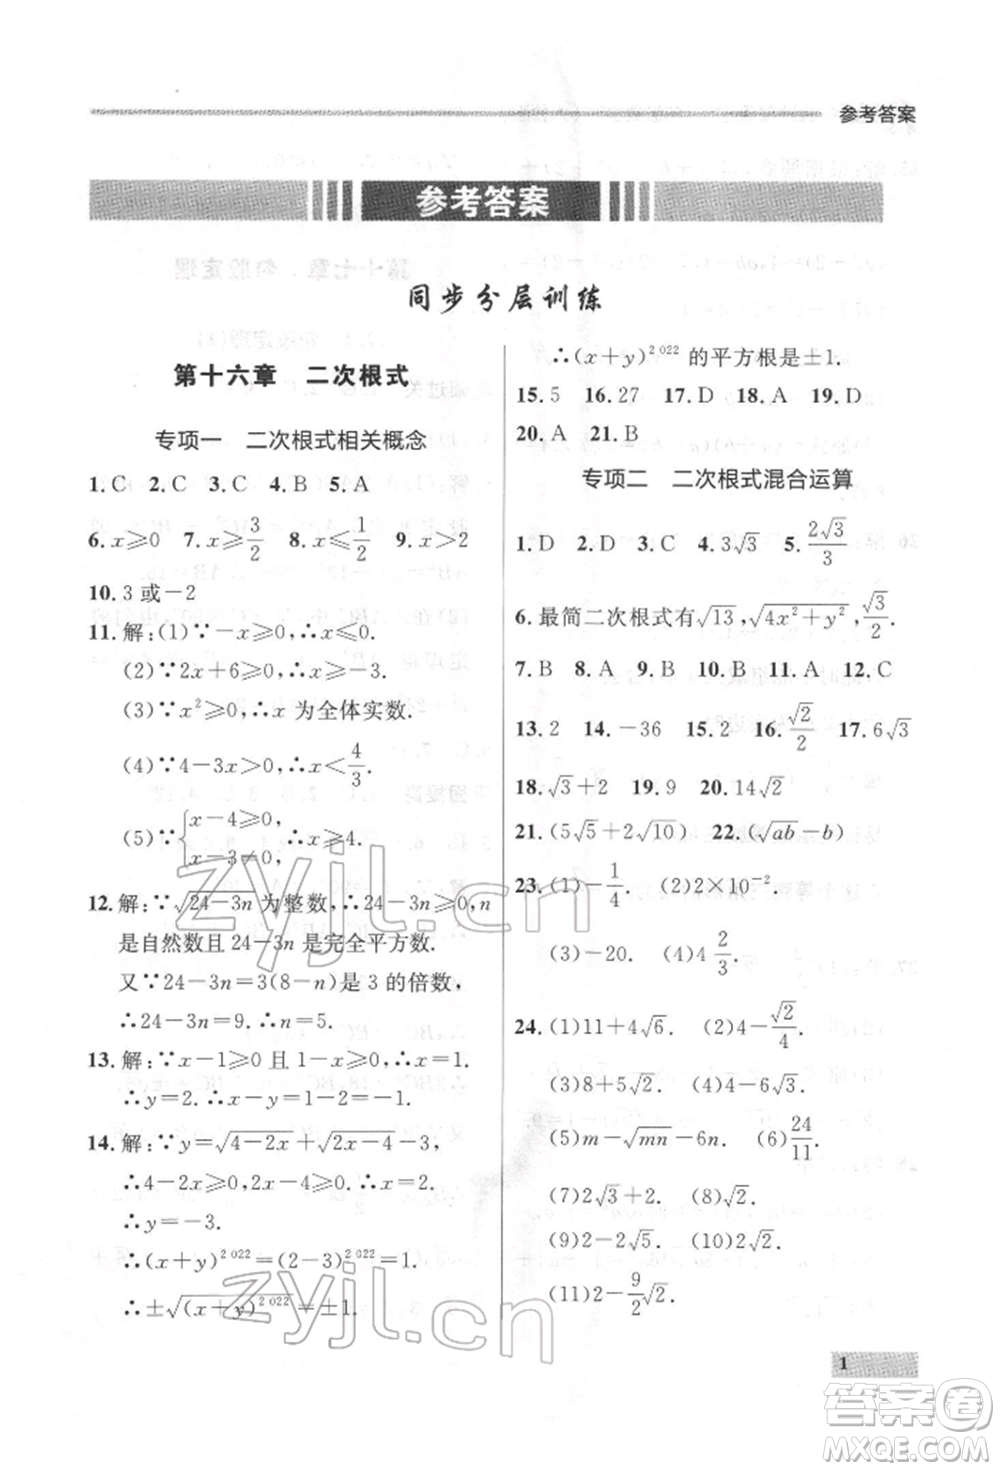 参考答案
参考答案
同步分层训练
第十六章　二次根式
专项一　二次根式相关概念
1.C　2.C　3.C　4.B　5.A
6.x⩾0　7.x⩾3/2　8.x⩽1/2　9.x>2
10.3或-2
11.解:(1)∵-x⩾0,∴x⩽0.
(2)∵2x+6⩾0,∴x⩾-3.
(3)∵x²⩾0,∴x为全体实数.
(4)∵4-3x>0,∴x<4/3.
(5)∵{x-4⩾0, x-3≠0, ∴x⩾4.
12.解:∵√(24-3n)为整数,∴24-3n⩾0,n
是自然数且24-3n是完全平方数.
又∵24-3n=3(8-n)是3的倍数,
∴24-3n=9.∴n=5.
13.解:∵x-1⩾0且1-x⩾0,∴x=1.
∴y=2.∴x-y=-1.
14.解:∵y=√(4-2x)+√(2x-4)-3,
∴4-2x⩾0,2x-4⩾0.∴x=2.
∴y=-3.
∴(x+y)²⁰²²=(2-3)²⁰²²=1.
∴±√((x+y)²⁰²²)=±1.
∴(x+y)²⁰²²的平方根是±1.
15.5　16.27　17.D　18.A　19.D
20.A　21.B
专项二　二次根式混合运算
1.D　2.D　3.C　4.3√3　5.2√3/3
6.最简二次根式有√13,√(4x²+y²),√3/2.
7.B　8.A　9.B　10.B　11.A　12.C
13.2　14.-36　15.2　16.√2/2　17.6√3
18.√3+1　19.9　20.14√2
21.(5√5+2√10)　22.(√ab-b)
23.(1)-1/4.　(2)2×10⁻².
(3)-20.　(4)4 2/3.
24.(1)11+4√6.　(2)4-√2/4.
(3)8+5√2.　(4)4-6√3.
(5)m-√mn-6n.　(6)24/11.
(7)2√3+2.　(8)√2.
(9)2-√2.　(10)2√2.
(11)2-9/2√2.
1
zyjl.cn
zyjl.cn
答案圈
MXQE.COM